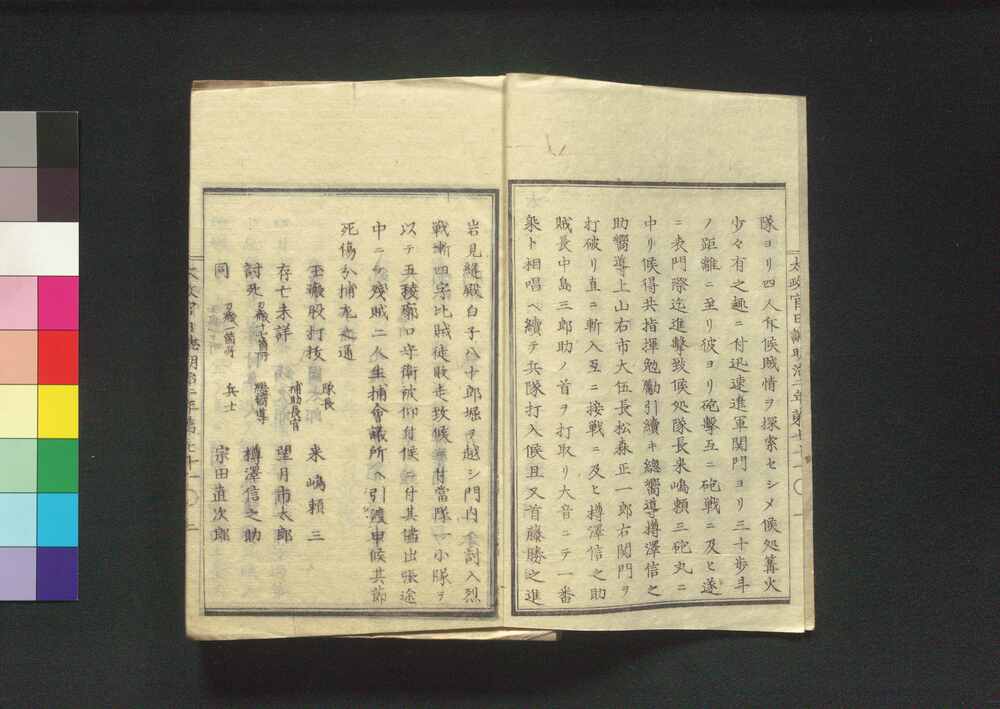 太政官日誌明治二年第七十一〇一
隊ヨリ四人斥候賊情ヲ探索セシメ候処篝火
少々有之趣ニ付迅速進軍関門ヨリ三十歩斗
ノ距離ニ至リ彼ヨリ砲撃互ニ砲戦ニ及ヒ遂
ニ表門際迄進撃致候処隊長来嶋頼三砲丸ニ
中リ候得共指揮勉勵引續キ總嚮導樽澤信之
助嚮導上山右市大伍長松森正一郎右関門ヲ
打破リ直ニ斬入互ニ接戦ニ及ヒ樽澤信之助
賊長中島三郎助ノ首ヲ打取リ大音ニテ一番
乗ト相唱ヘ續テ兵隊打入候且又首藤勝之進
岩見縫殿白子八十郎堀ヲ越シ門内ヘ討入烈
戦漸四字比賊徒敗走致候ニ付當隊一小隊ヲ
以テ五稜廓口守衛被仰付候ニ付其儘出張途
中ニテ残賊二人生捕會議所ヘ引渡申候其節
死傷分捕左之通
玉瘢股打抜 隊長 来嶋頼三
存亡未詳 補助長官 望月市太郎
討死 刀瘢十箇所 總嚮導 樽澤信之助
同 刀瘢一箇所 兵士 宗田直次郎
太政官日誌明治二年第七十一〇二